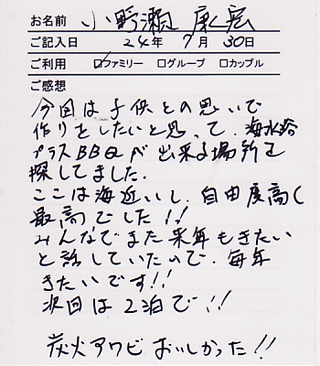 お名前 小野瀬 康宏
ご記入日 24年 7月 30日
ご利用 ☑ファミリー □グループ □カップル
ご感想
今回は子供との思いで
作りをしたいと思って、海水浴
プラスBBQが出来る場所を
探してました。
ここは海近いし、自由度高く
最高でした!!
みんなでまた来年もきたい
と話していたので、毎年
きたいです!!
次回は2泊で!!
炭火アワビおいしかった!!